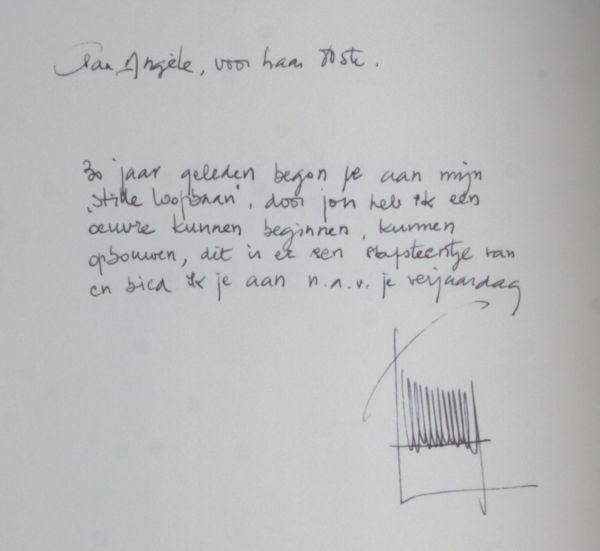 Aan Angèle, voor haar 70ste.
30 jaar geleden begon je aan mijn
'stille loopbaan', door jou heb ik een
œuvre kunnen beginnen, kunnen
opbouwen, dit is er een stapsteentje van
en bied ik je aan n.a.v. je verjaardag